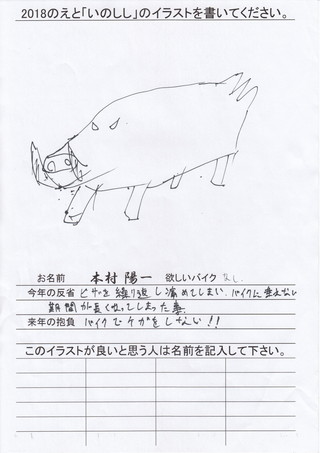 2018のえと「いのしし」のイラストを書いてください。
お名前 本村 陽一 欲しいバイク なし.
今年の反省 ヒザを繰り返し痛めてしまい、バイクに乗れない
期間が長くなってしまった事.
来年の抱負 バイクでケガをしない!!
このイラストが良いと思う人は名前を記入して下さい。